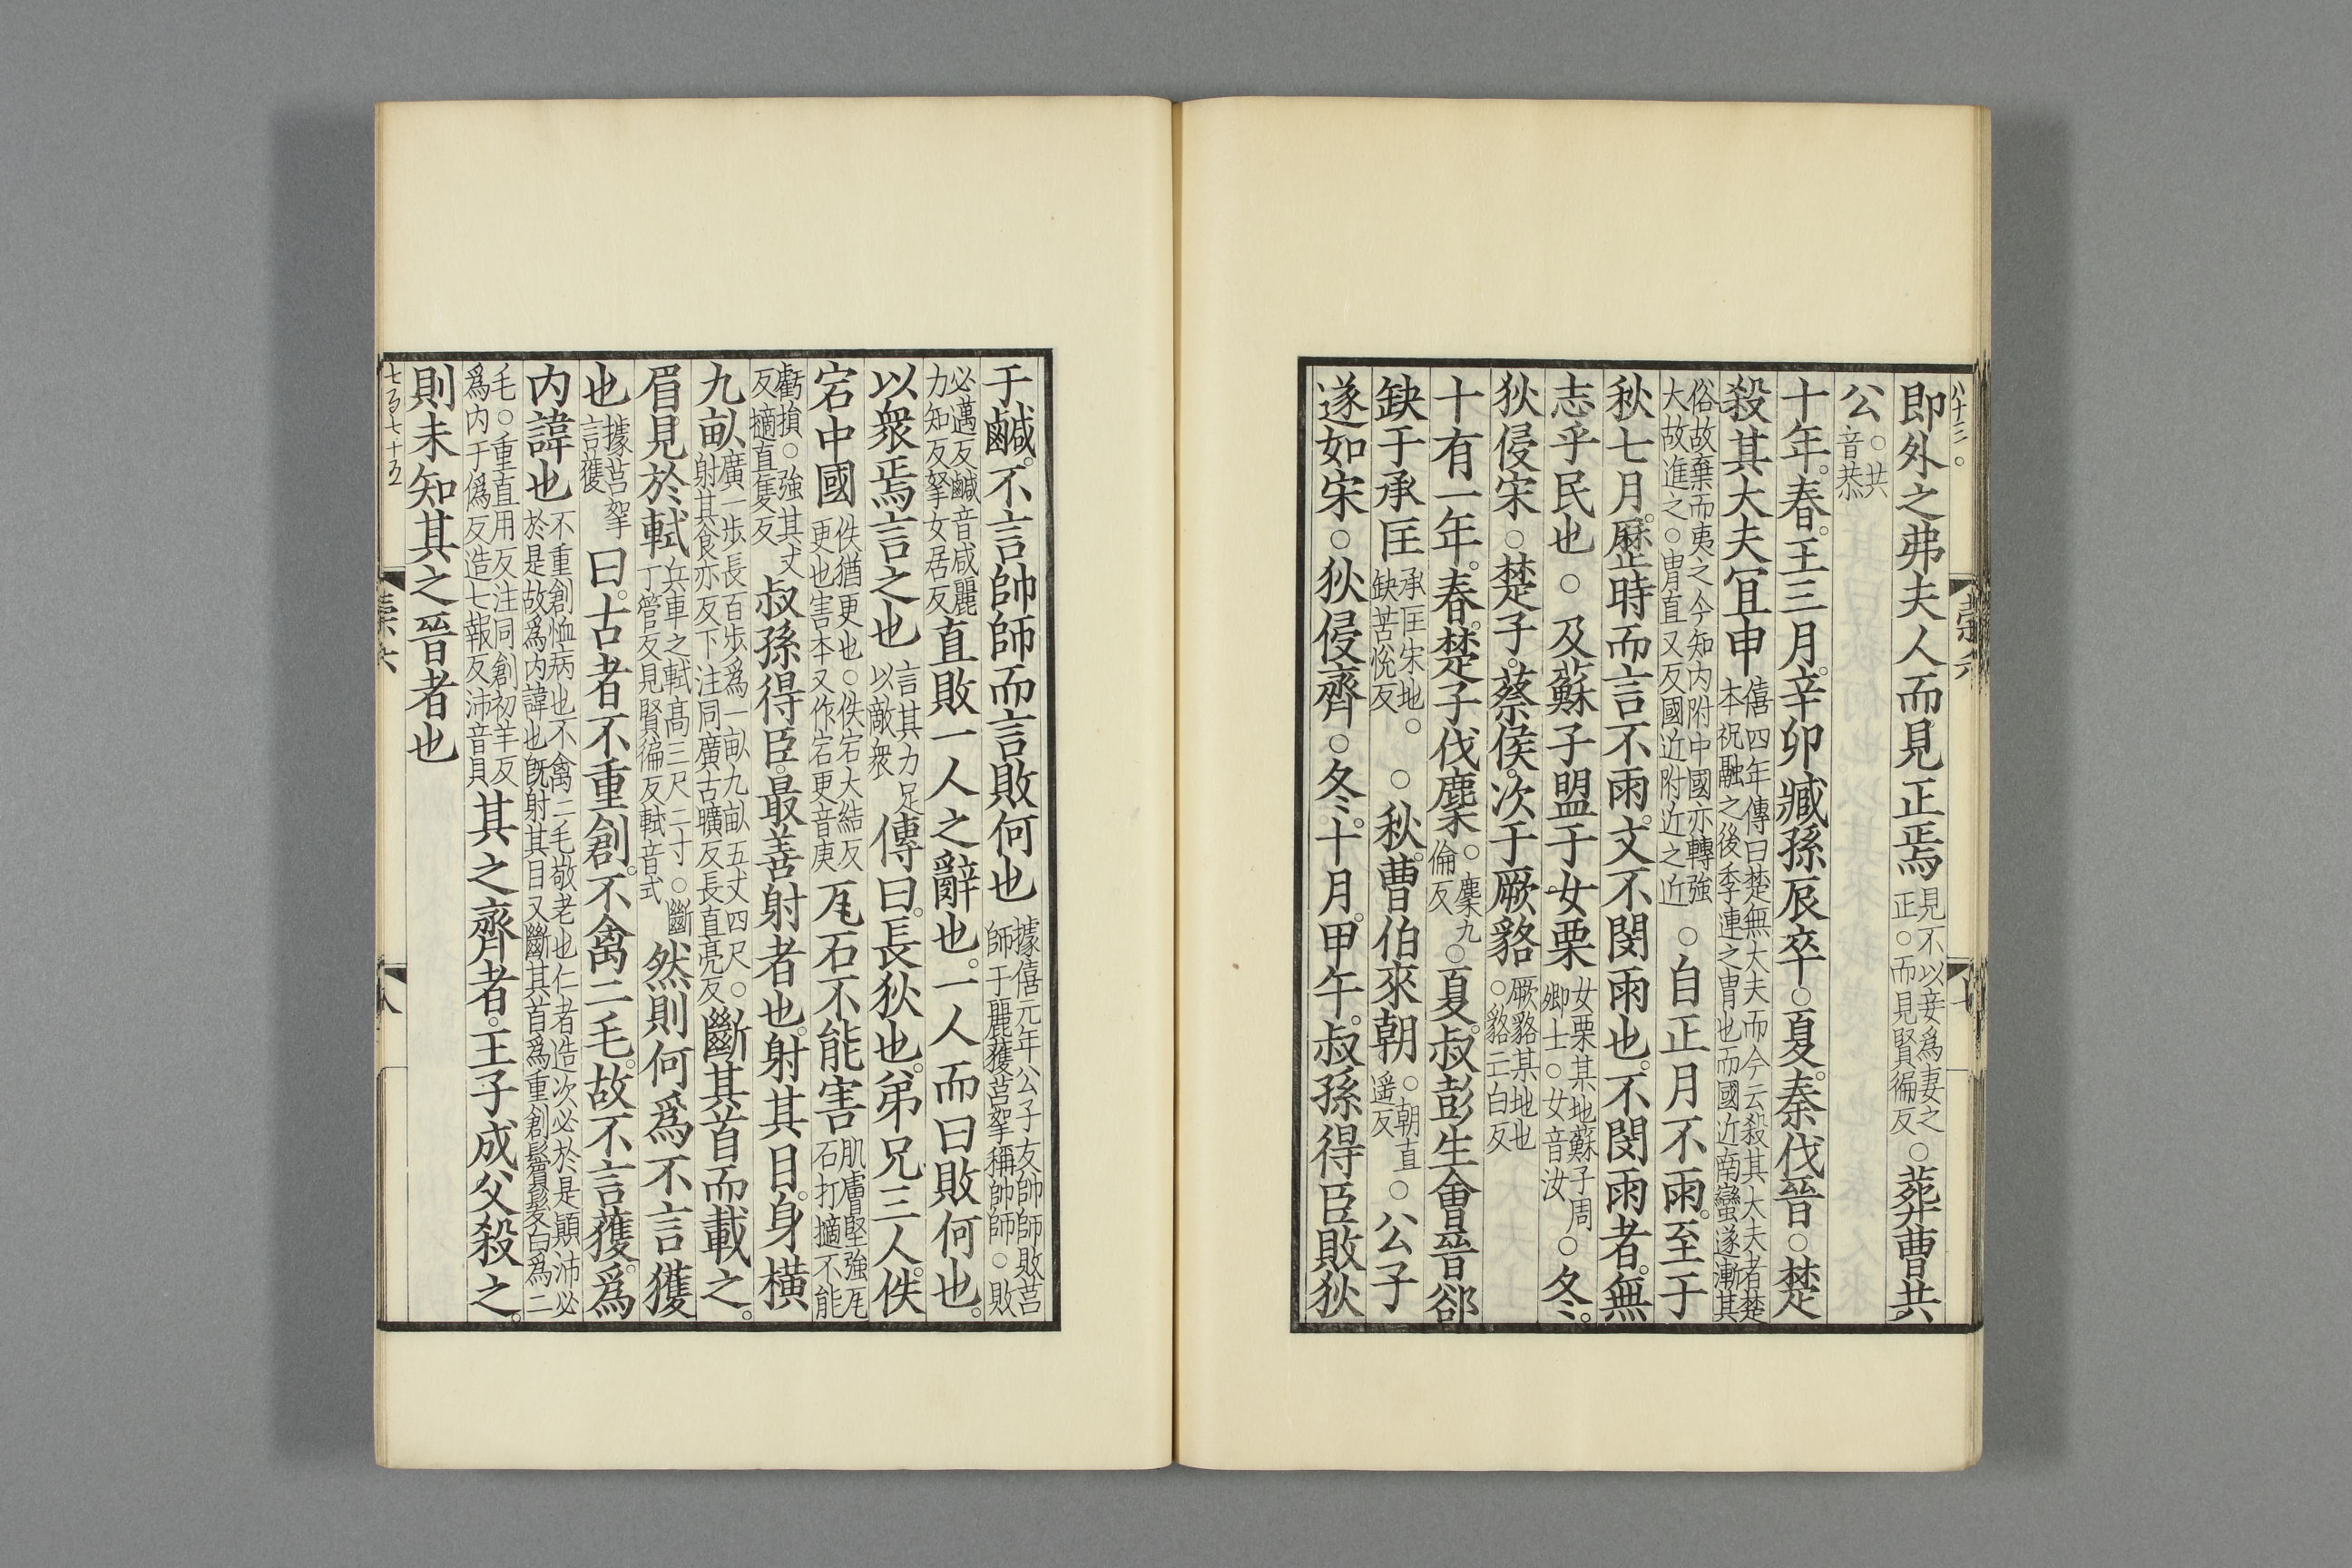 即外之弗夫人而見正焉見不以妾爲妻之正○而見賢徧反○葬曹共
公○共音恭
十年春王三月辛卯臧孫辰卒○夏秦伐晉○楚
殺其大夫冝申僖四年傳曰楚無大夫而今云殺其大夫者楚本祝融之後季連之冑也而國近南蠻遂漸其
俗故棄而夷之今知内附中國亦轉強大故進之○冑直又反國近附近之近○自正月不雨至于
秋七月歷時而言不雨文不閔雨也不閔雨者無
志乎民也○及蘇子盟于女栗女栗某地蘇子周卿士○女音汝○冬
狄侵宋○楚子蔡侯次于厥貉厥貉某地也○貉亡白反
十有一年春楚子伐麇○麇九倫反○夏叔彭生會晉郤
缺于承匡承匡宋地○缺苦悅反○秋曹伯來朝○朝直遥反○公子
遂如宋○狄侵齊○冬十月甲午叔孫得臣敗狄
于鹹不言帥師而言敗何也據僖元年公子友帥師敗莒師于麗獲莒挐稱帥師○敗
必邁反鹹音咸麗力知反挐女居反直敗一人之辭也一人而曰敗何也
以衆焉言之也言其力足以敵衆傳曰長狄也弟兄三人佚
宕中國佚猶更也○佚宕大結反更也害本又作宕更音庚瓦石不能害肌膚堅強瓦石打擿不能
虧損○強其丈反擿直隻反叔孫得臣最善射者也射其目身橫
九畝廣一步長百步爲一畝九畝五丈四尺○射其食亦反下注同廣古曠反長直亮反斷其首而載之
眉見於軾兵車之軾高三尺三寸○斷丁管反見賢徧反軾音式然則何爲不言獲
也據莒挐言獲曰古者不重創不禽二毛故不言獲爲
内諱也不重創恤病也不禽二毛敬老也仁者造次必於是顚沛必於是故爲内諱也旣射其目又斷其首爲重創鬢髮白爲二
毛○重直用反注同創初羊反爲内于僞反造七報反沛音貝其之齊者王子成父殺之
則未知其之晉者也
七百七十五